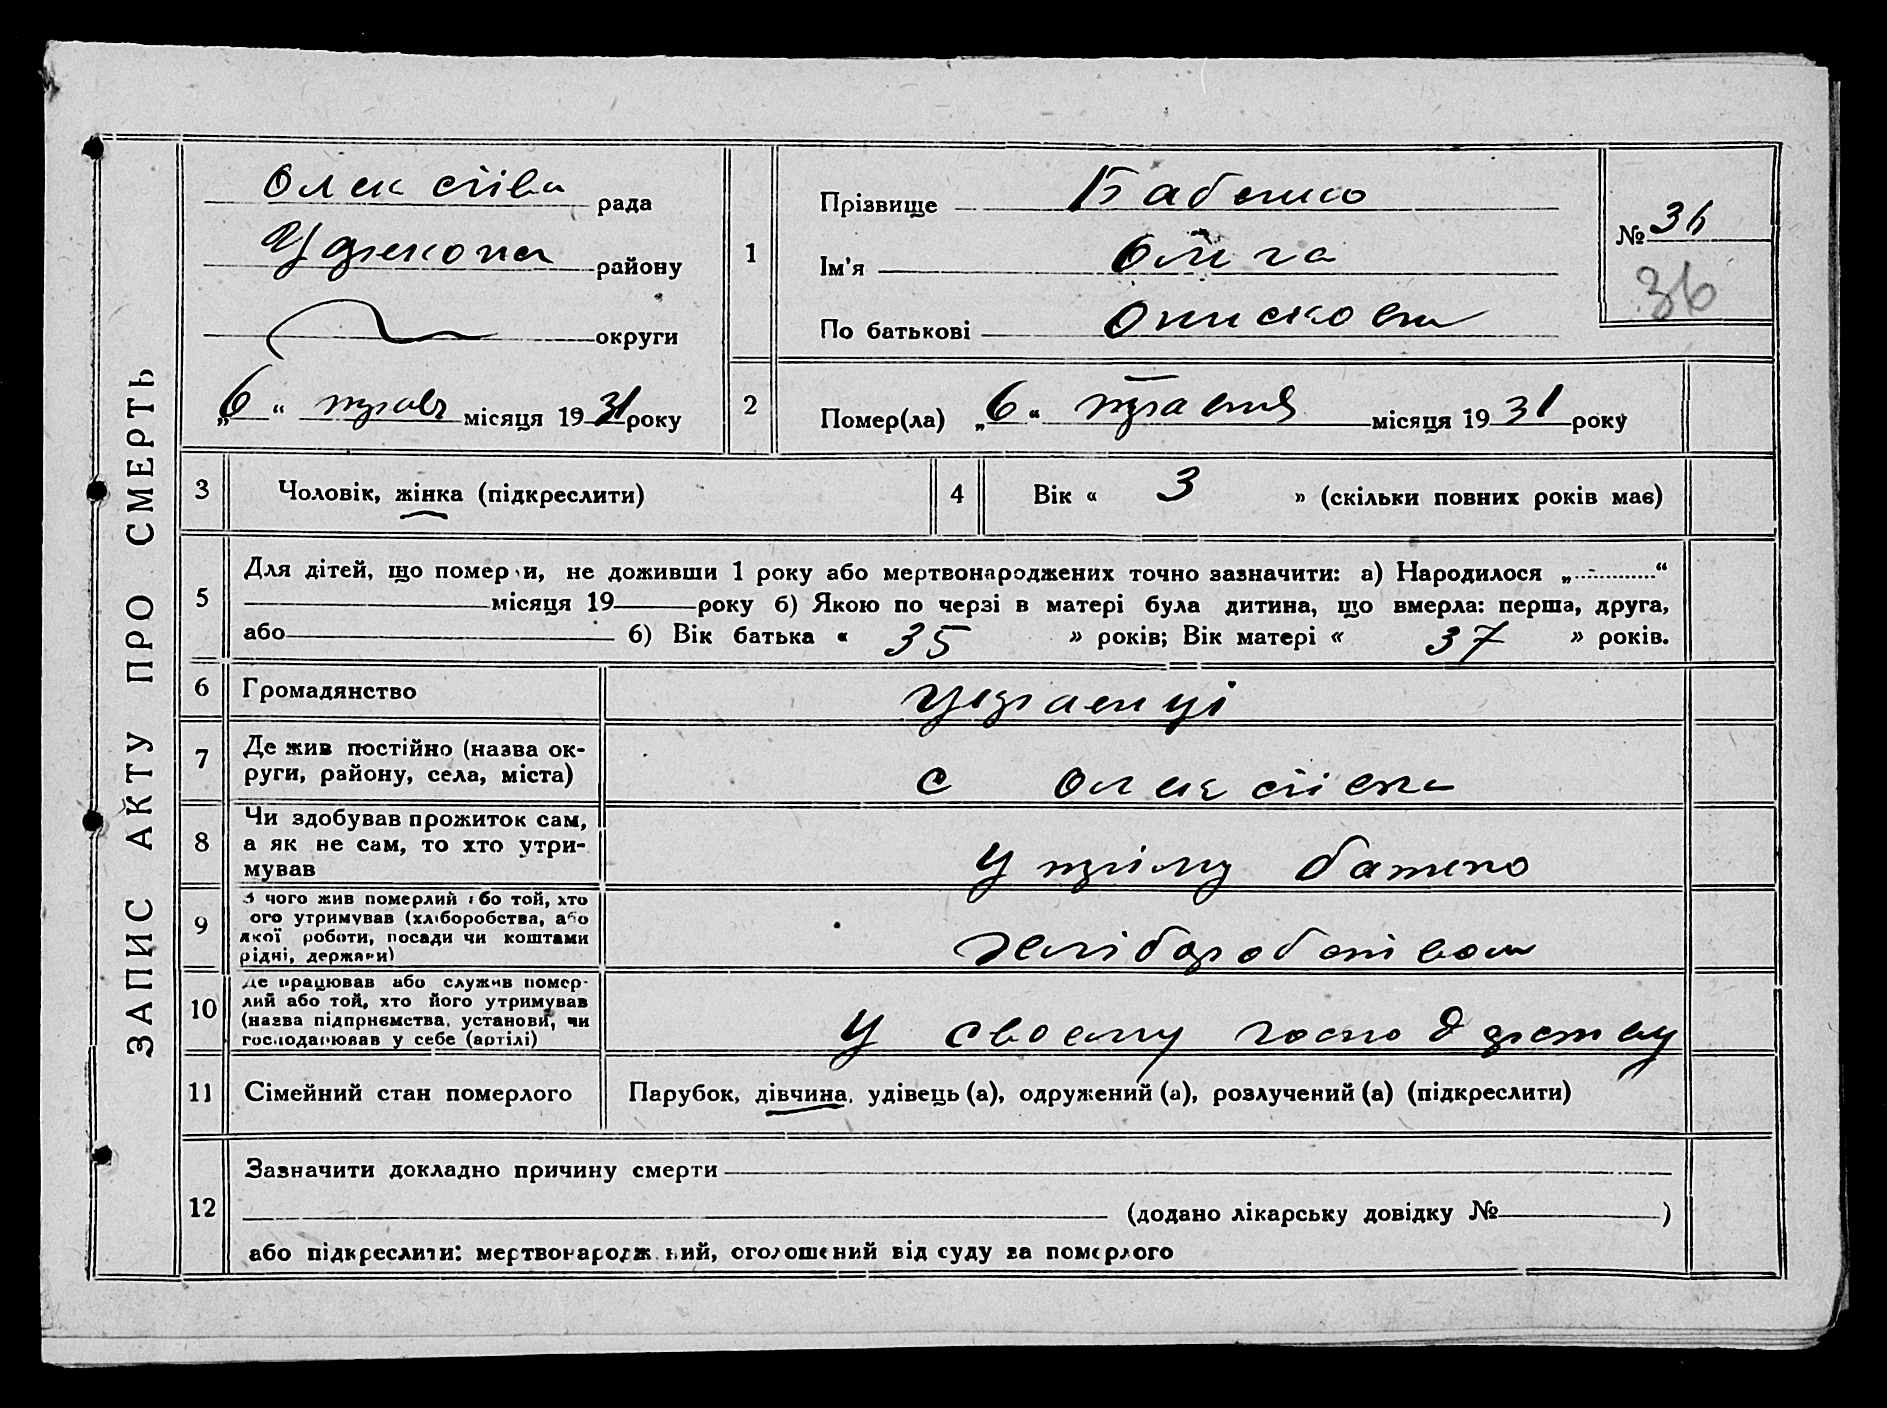 ЗАПИС АКТУ ПРО СМЕРТЬ
рада
району
округи
„6“ трав місяця 1931 року
1
Прізвище Бабенко
Ім'я Ольга
По батькові
№ 36
36
2
Помер(ла) „6“ травня місяця 1931 року
3
Чоловік, жінка (підкреслити)
4
Вік « 3 » (скільки повних років має)
5
Для дітей, що померли, не доживши 1 року або мертвонароджених точно зазначити: а) Народилося „ “
місяця 19 року б) Якою по черзі в матері була дитина, що вмерла: перша, друга,
або б) Вік батька « 35 » років; Вік матері « 37 » років.
6
Громадянство
українці
7
Де жив постійно (назва ок-
руги, району, села, міста)
с Олексіївка
8
Чи здобував прожиток сам,
а як не сам, то хто утри-
мував
утриму батько
9
З чого жив померлий або той, хто
ого утримував (хліборобства, або
якої роботи, посади чи коштами
рідні, держави)
хліборобством
10
Де працював або служив помер-
лий або той, хто його утримував
(назва підприємства, установи, чи
господарював у себе (артілі)
У своєму господарству
11
Сімейний стан померлого
Парубок, дівчина, удівець (а), одружений (а), розлучений (а) (підкреслити)
12
Зазначити докладно причину смерти
(додано лікарську довідку № )
або підкреслити: мертвонароджений, оголошений від суду за померлого